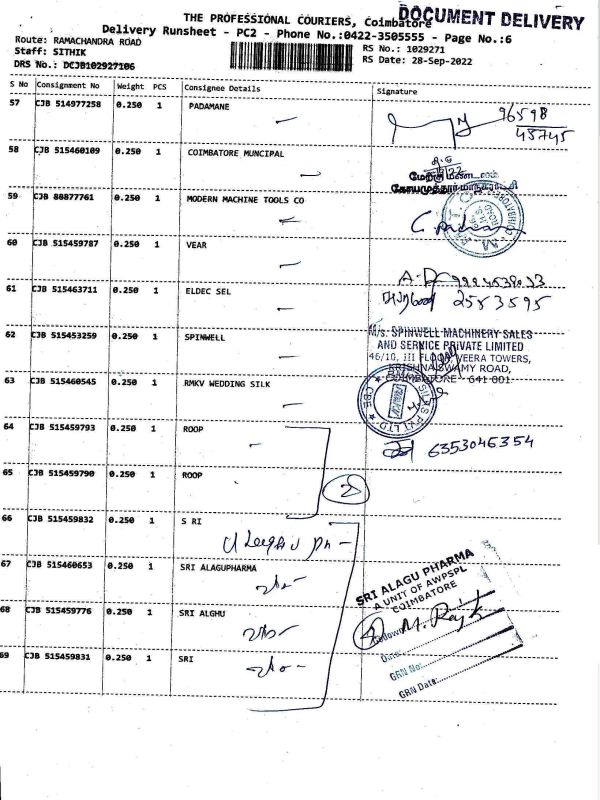 THE PROFESSIONAL COURIERS, Coimbatore
DOCUMENT DELIVERY
Delivery Runsheet - PC2 - Phone No.:0422-3505555 - Page No.:6
Route: RAMACHANDRA ROAD
RS No.: 1029271
Staff: SITHIK
RS Date: 28-Sep-2022
DRS No.: DCJB102927106
S No Consignment No Weight PCS Consignee Details Signature
57 CJB 514977258 0.250 1 PADAMANE
96598
45745
58 CJB 515460109 0.250 1 COIMBATORE MUNCIPAL
59 CJB 88877761 0.250 1 MODERN MACHINE TOOLS CO
60 CJB 515459787 0.250 1 VEAR
61 CJB 515463711 0.250 1 ELDEC SEL
2553595
62 CJB 515453259 0.250 1 SPINWELL
M/s. SPINWELL MACHINERY SALES
AND SERVICE PRIVATE LIMITED
46/10, III FLOOR, VEERA TOWERS,
KRISHNA SWAMY ROAD,
COIMBATORE - 641 001
63 CJB 515460545 0.250 1 RMKV WEDDING SILK
64 CJB 515459793 0.250 1 ROOP
6353046354
65 CJB 515459790 0.250 1 ROOP
2
66 CJB 515459832 0.250 1 S RI
67 CJB 515460653 0.250 1 SRI ALAGUPHARMA
SRI ALAGU PHARMA
A UNIT OF AWPSPL
COIMBATORE
68 CJB 515459776 0.250 1 SRI ALGHU
69 CJB 515459831 0.250 1 SRI
Date:
GRN No:
GRN Date: